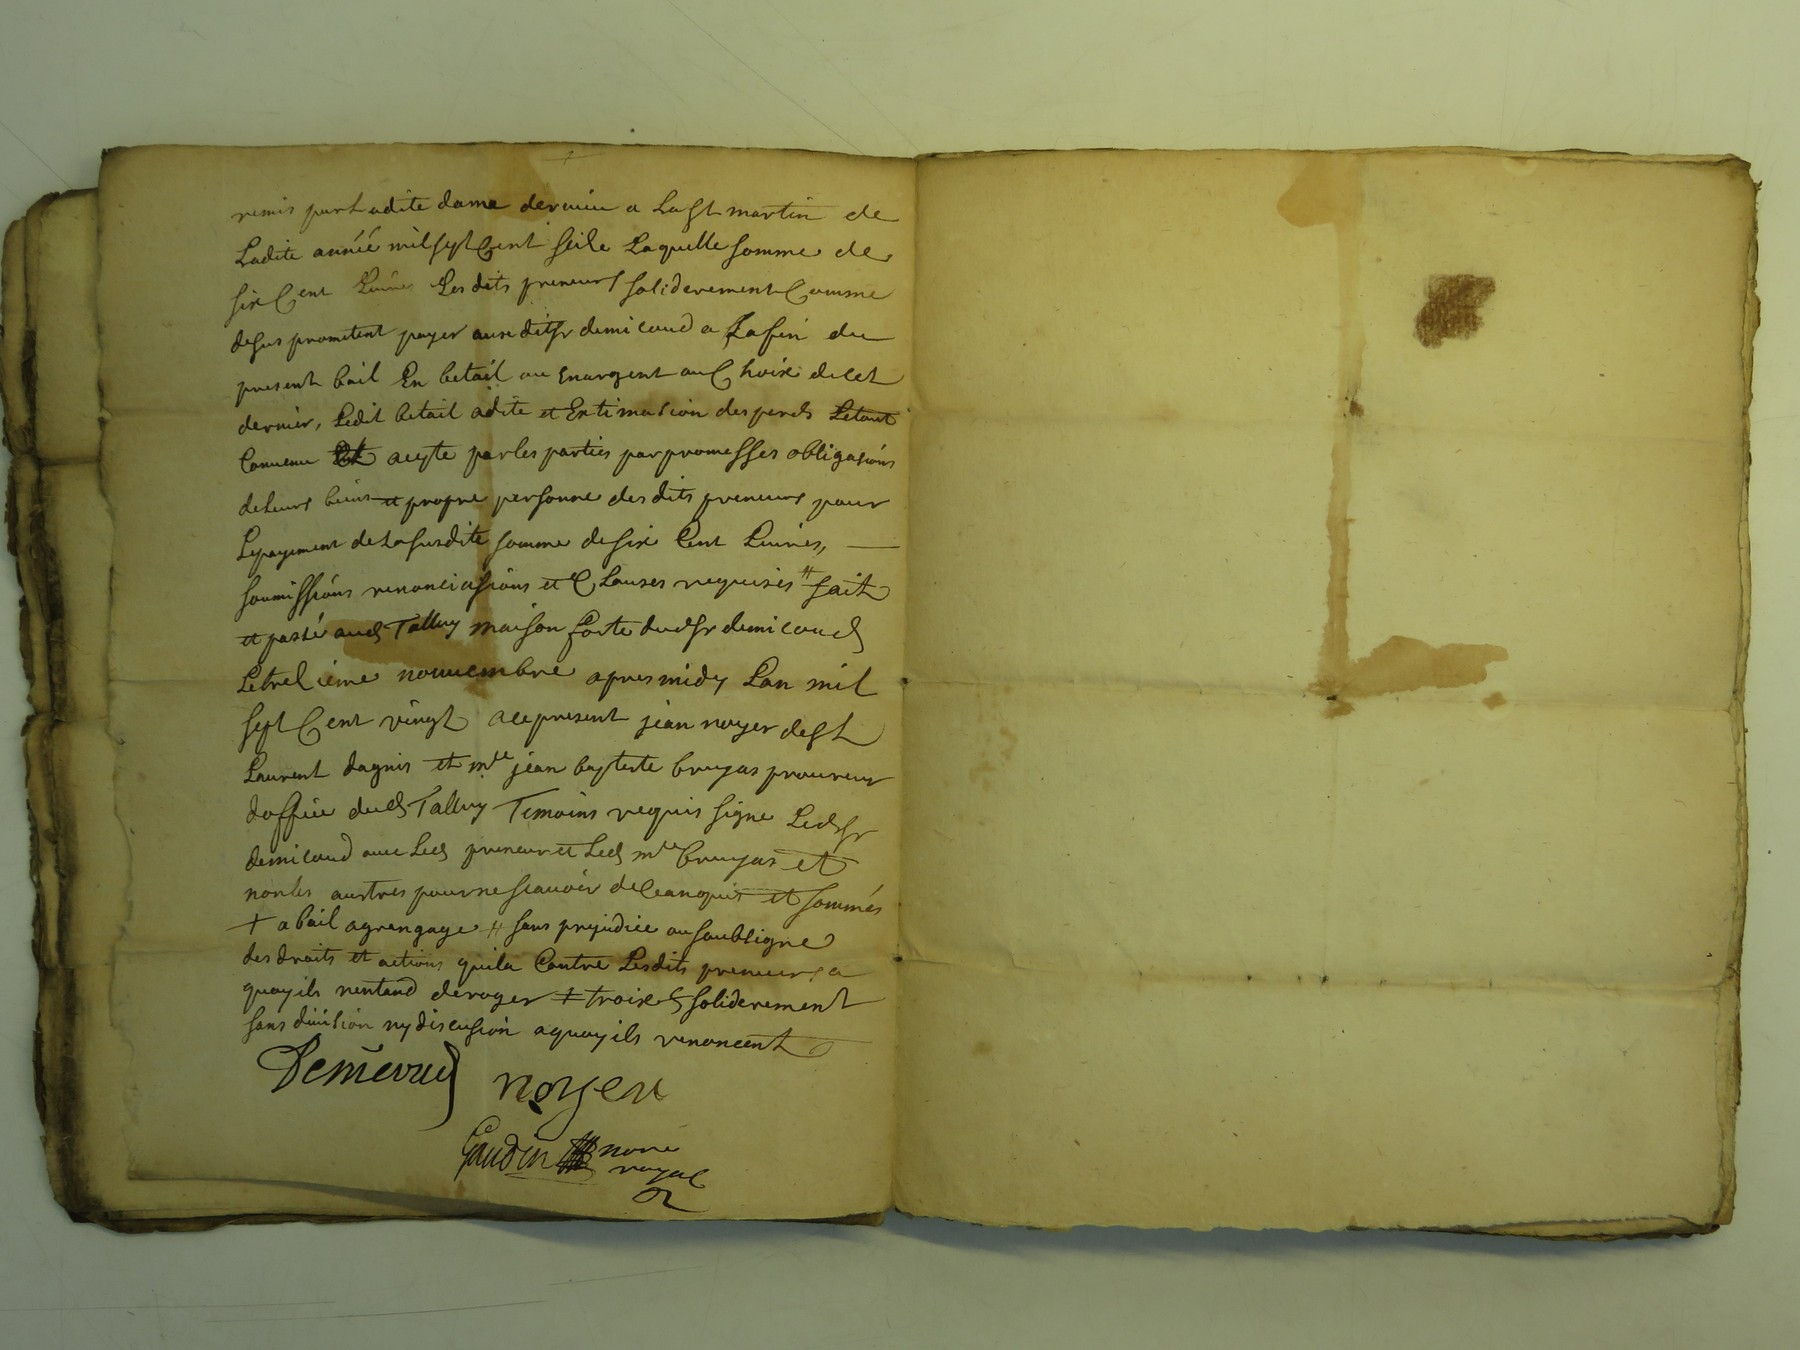 remis par Ladite dame dervieu a La St martin de
Ladite année mil sept Cent seile Laquelle somme de
six Cent Liures Lesdits preneurs soliderement Comme
desus prometent payer aux dit Sr demicoud a La fin du
present bail En betail ou En argent au Choix de cet
dernier, Ledit betail a dite et Extimasion des perds Le tout
Conuenu acepte par les parties par promesses obligasions
de Leurs biens et propre personne des dits preneurs pour
Le payement de La susdite somme de six Cent Liures,
soumissions renonciasions et Clauses requises # fait
et passé aud Talluy maison forte dud Sr demicoud
Le trelieme nouuembre apres midy Lan mil
sept Cent vingt a ce present jean noyer de St
Laurent dagnis et mtre jean baptiste bruyas procureur
doffice dud Talluy Temoins requis signe Led Sr
demicoud auec Led preneur et Led mtre bruyas et
non les austres pour ne scauoir de Ce anquis et sommés
+ a bail a grangage # sans prejudice au soubsigne
des droits et actions quil a Contre Lesdits preneurs a
quoy ils nentend deroger ‡ troix d soliderement
sans diuision ny discusion a quoy ils renoncent
noyer
Gaudin nore
royal